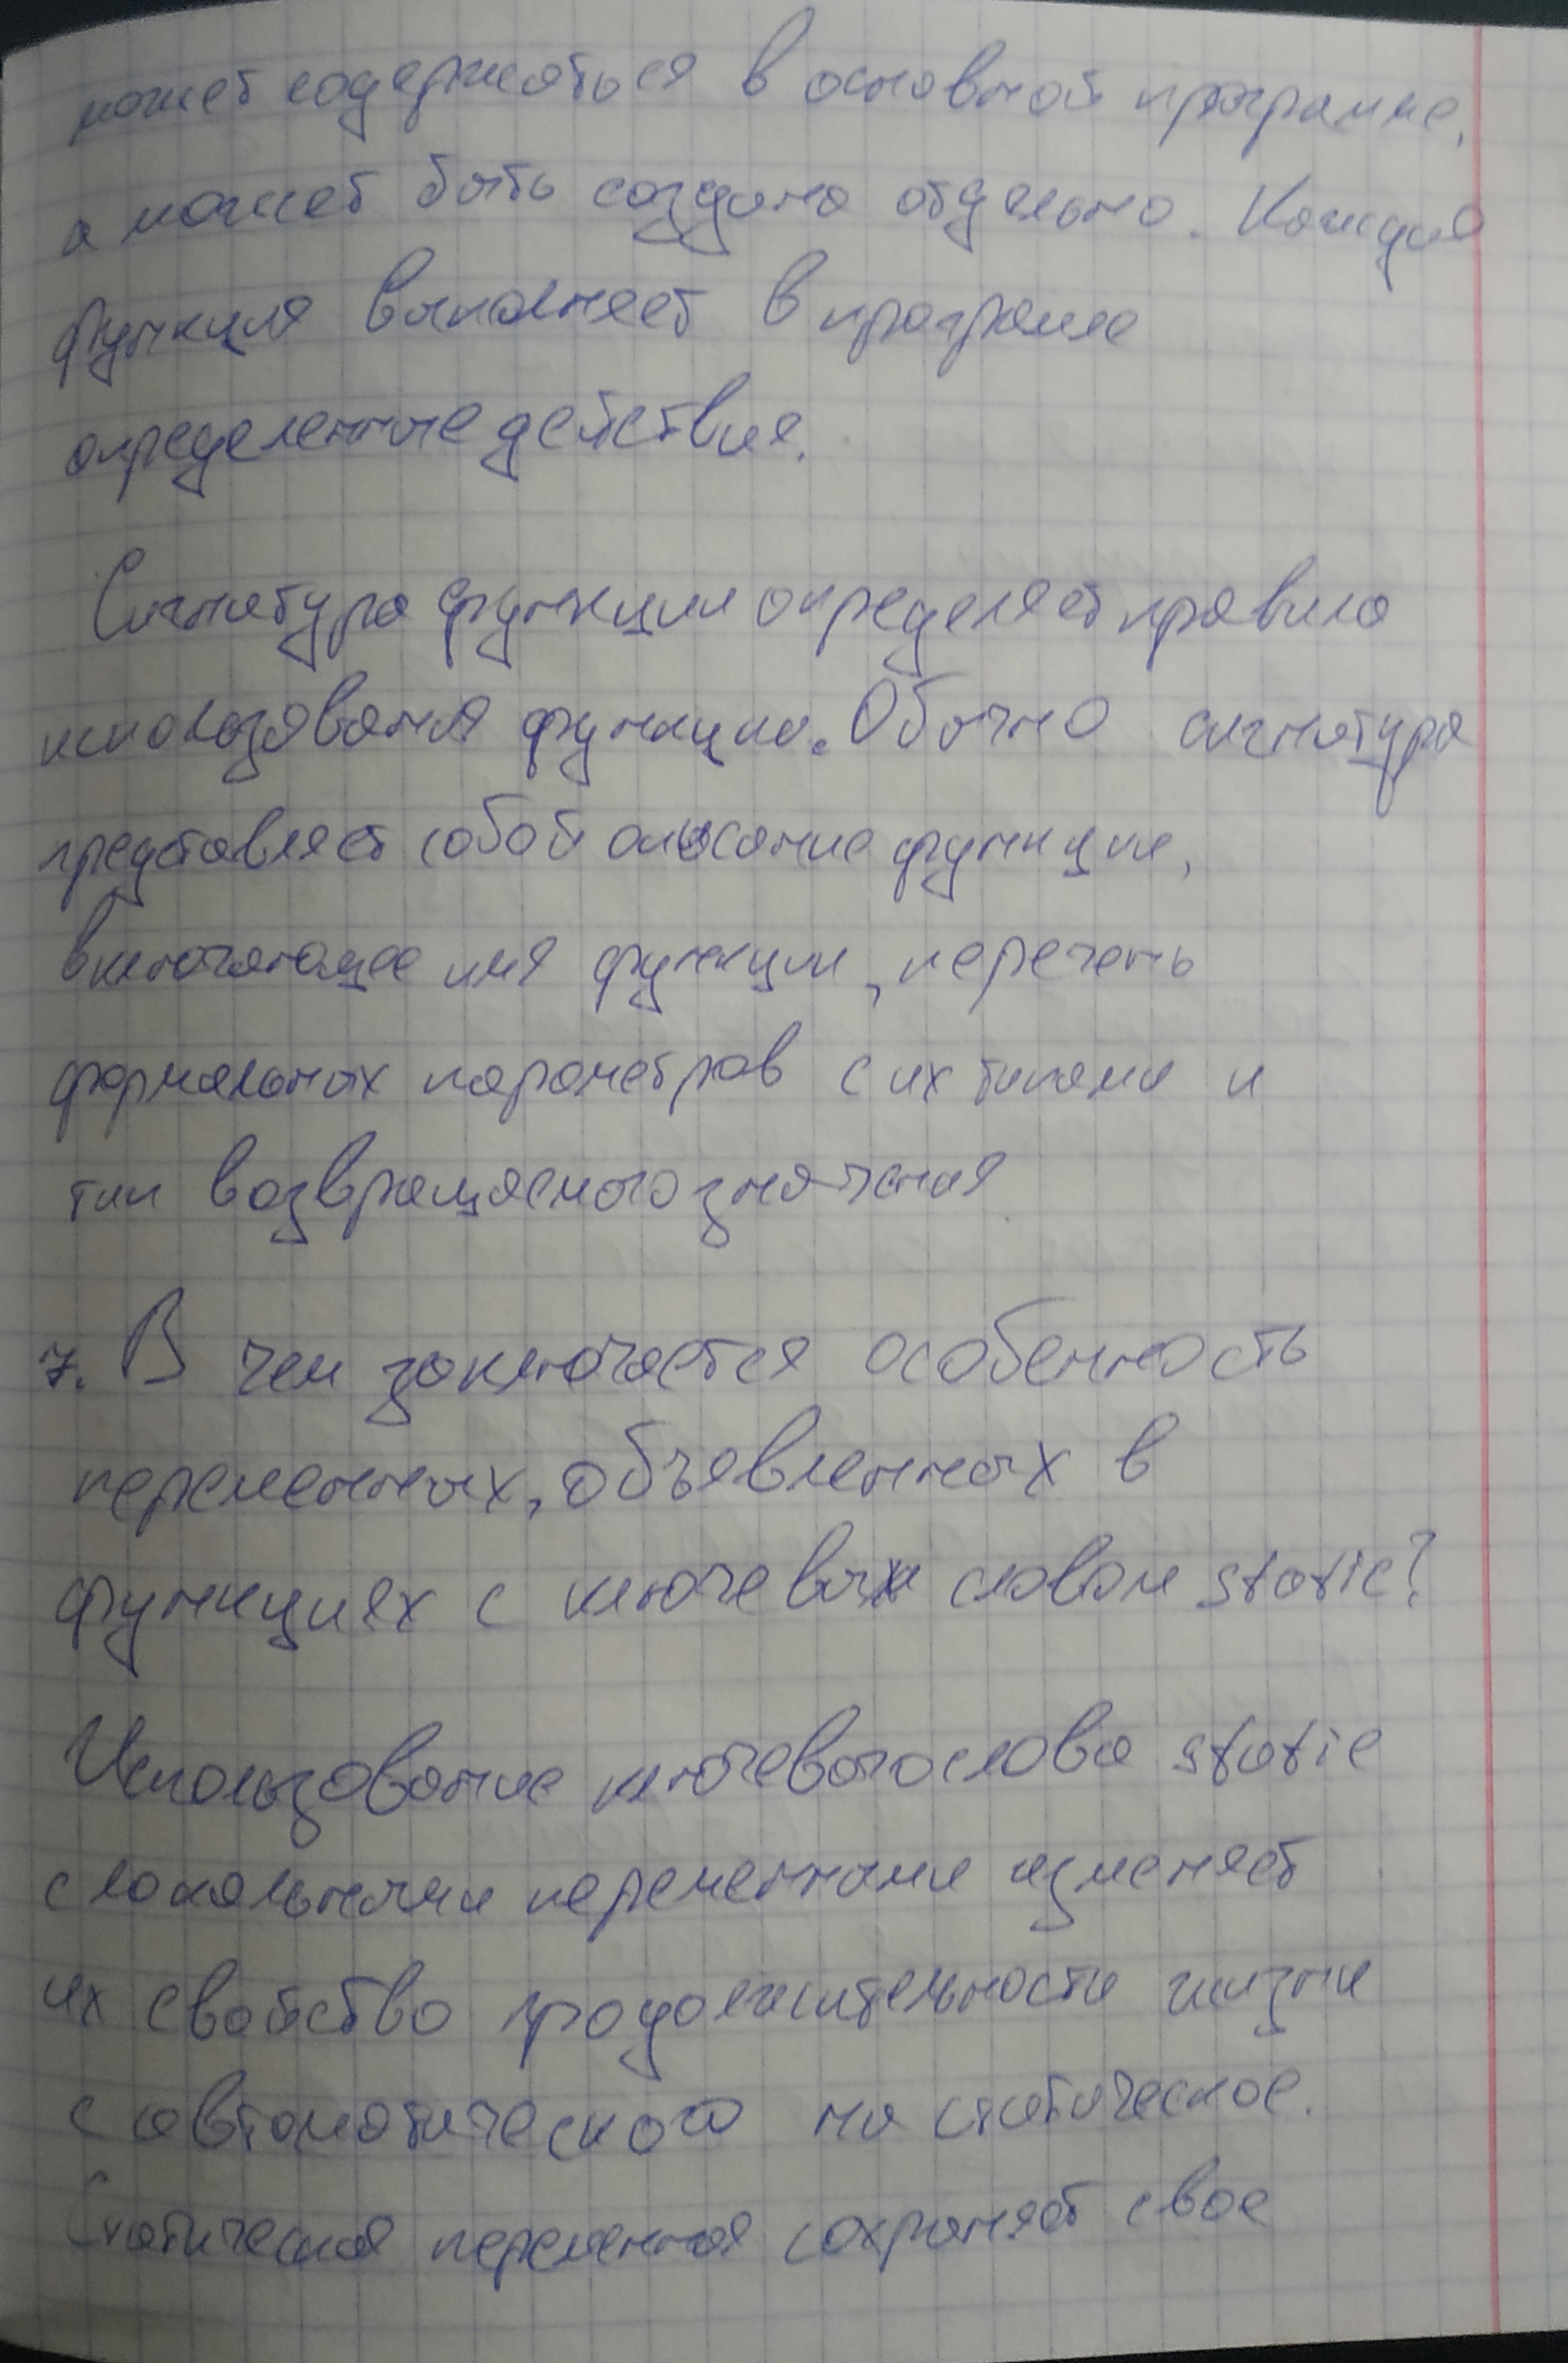 может содержаться в основной программе,
а может быть создана отдельно. Каждая
функция выполняет в программе
определенные действия.
Сигнатура функции определяет правила
использования функции. Обычно сигнатура
представляет собой описание функции,
включающее имя функции, перечень
формальных параметров с их типами и
тип возвращаемого значения
7. В чем заключается особенность
переменных, объявленных в
функциях с ключевым словом static?
Использование ключевого слова static
с локальными переменными изменяет
их свойство продолжительности жизни
с автоматического на статическое.
Статическая переменная сохраняет свое